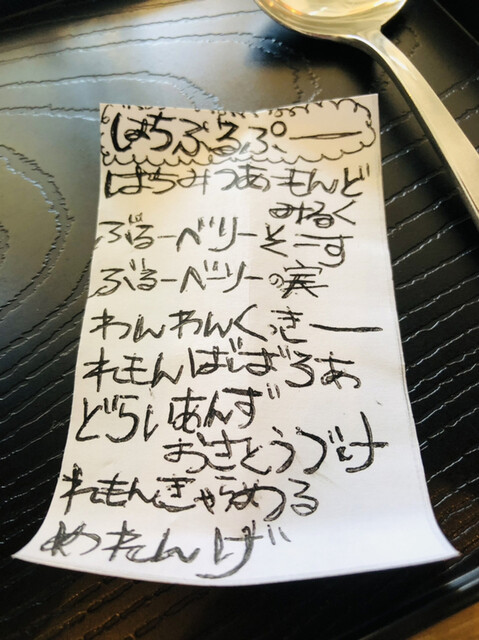 はちぶるぷー
はちみつあもんど
みるく
ぶるーベリーそーす
ぶるーベリーの実
わんわんくっきー
れもんばばろあ
どらいあんず
おさとうづけ
れもんきゃらめる
めれんげ